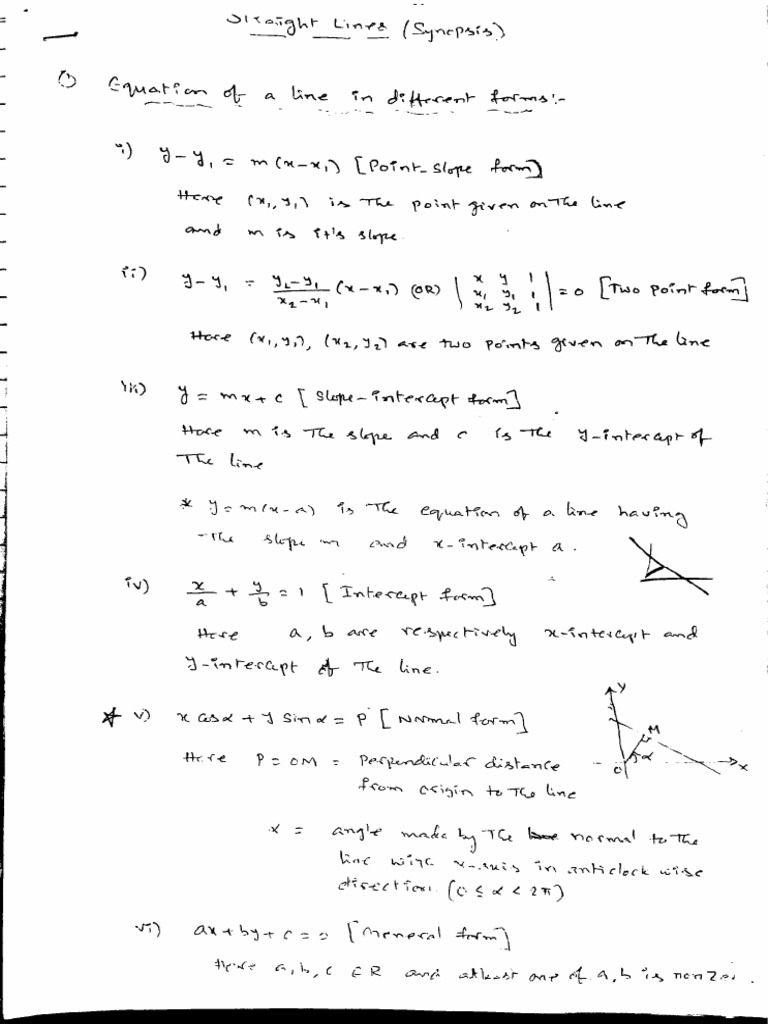 Straight Lines (Synopsis)
① Equation of a line in different forms:-
i) y-y₁ = m(x-x₁) [Point-slope form]
Here (x₁, y₁) is The point given on The line
and m is it's slope.
ii) y-y₁ = y₂-y₁/x₂-x₁ (x-x₁) (OR) | x y 1 ; x₁ y₁ 1 ; x₂ y₂ 1 | = 0 [Two point form]
Here (x₁, y₁), (x₂, y₂) are two points given on The line
iii) y = mx+c [Slope-intercept form]
Here m is The slope and c is The y-intercept of
The line
* y = m(x-a) is The equation of a line having
The slope m and x-intercept a.
iv) x/a + y/b = 1 [Intercept form]
Here a, b are respectively x-intercept and
y-intercept of The line.
* v) x cosα + y sinα = P [Normal form]
y
M
α
O
x
Here P = OM = Perpendicular distance
from origin to The line
α = angle made by The normal to The
line with x-axis in anticlock wise
direction. (0 ≤ α < 2π)
vi) ax+by+c=0 [General form]
Here a, b, c ∈ R and atleast one of a, b is non